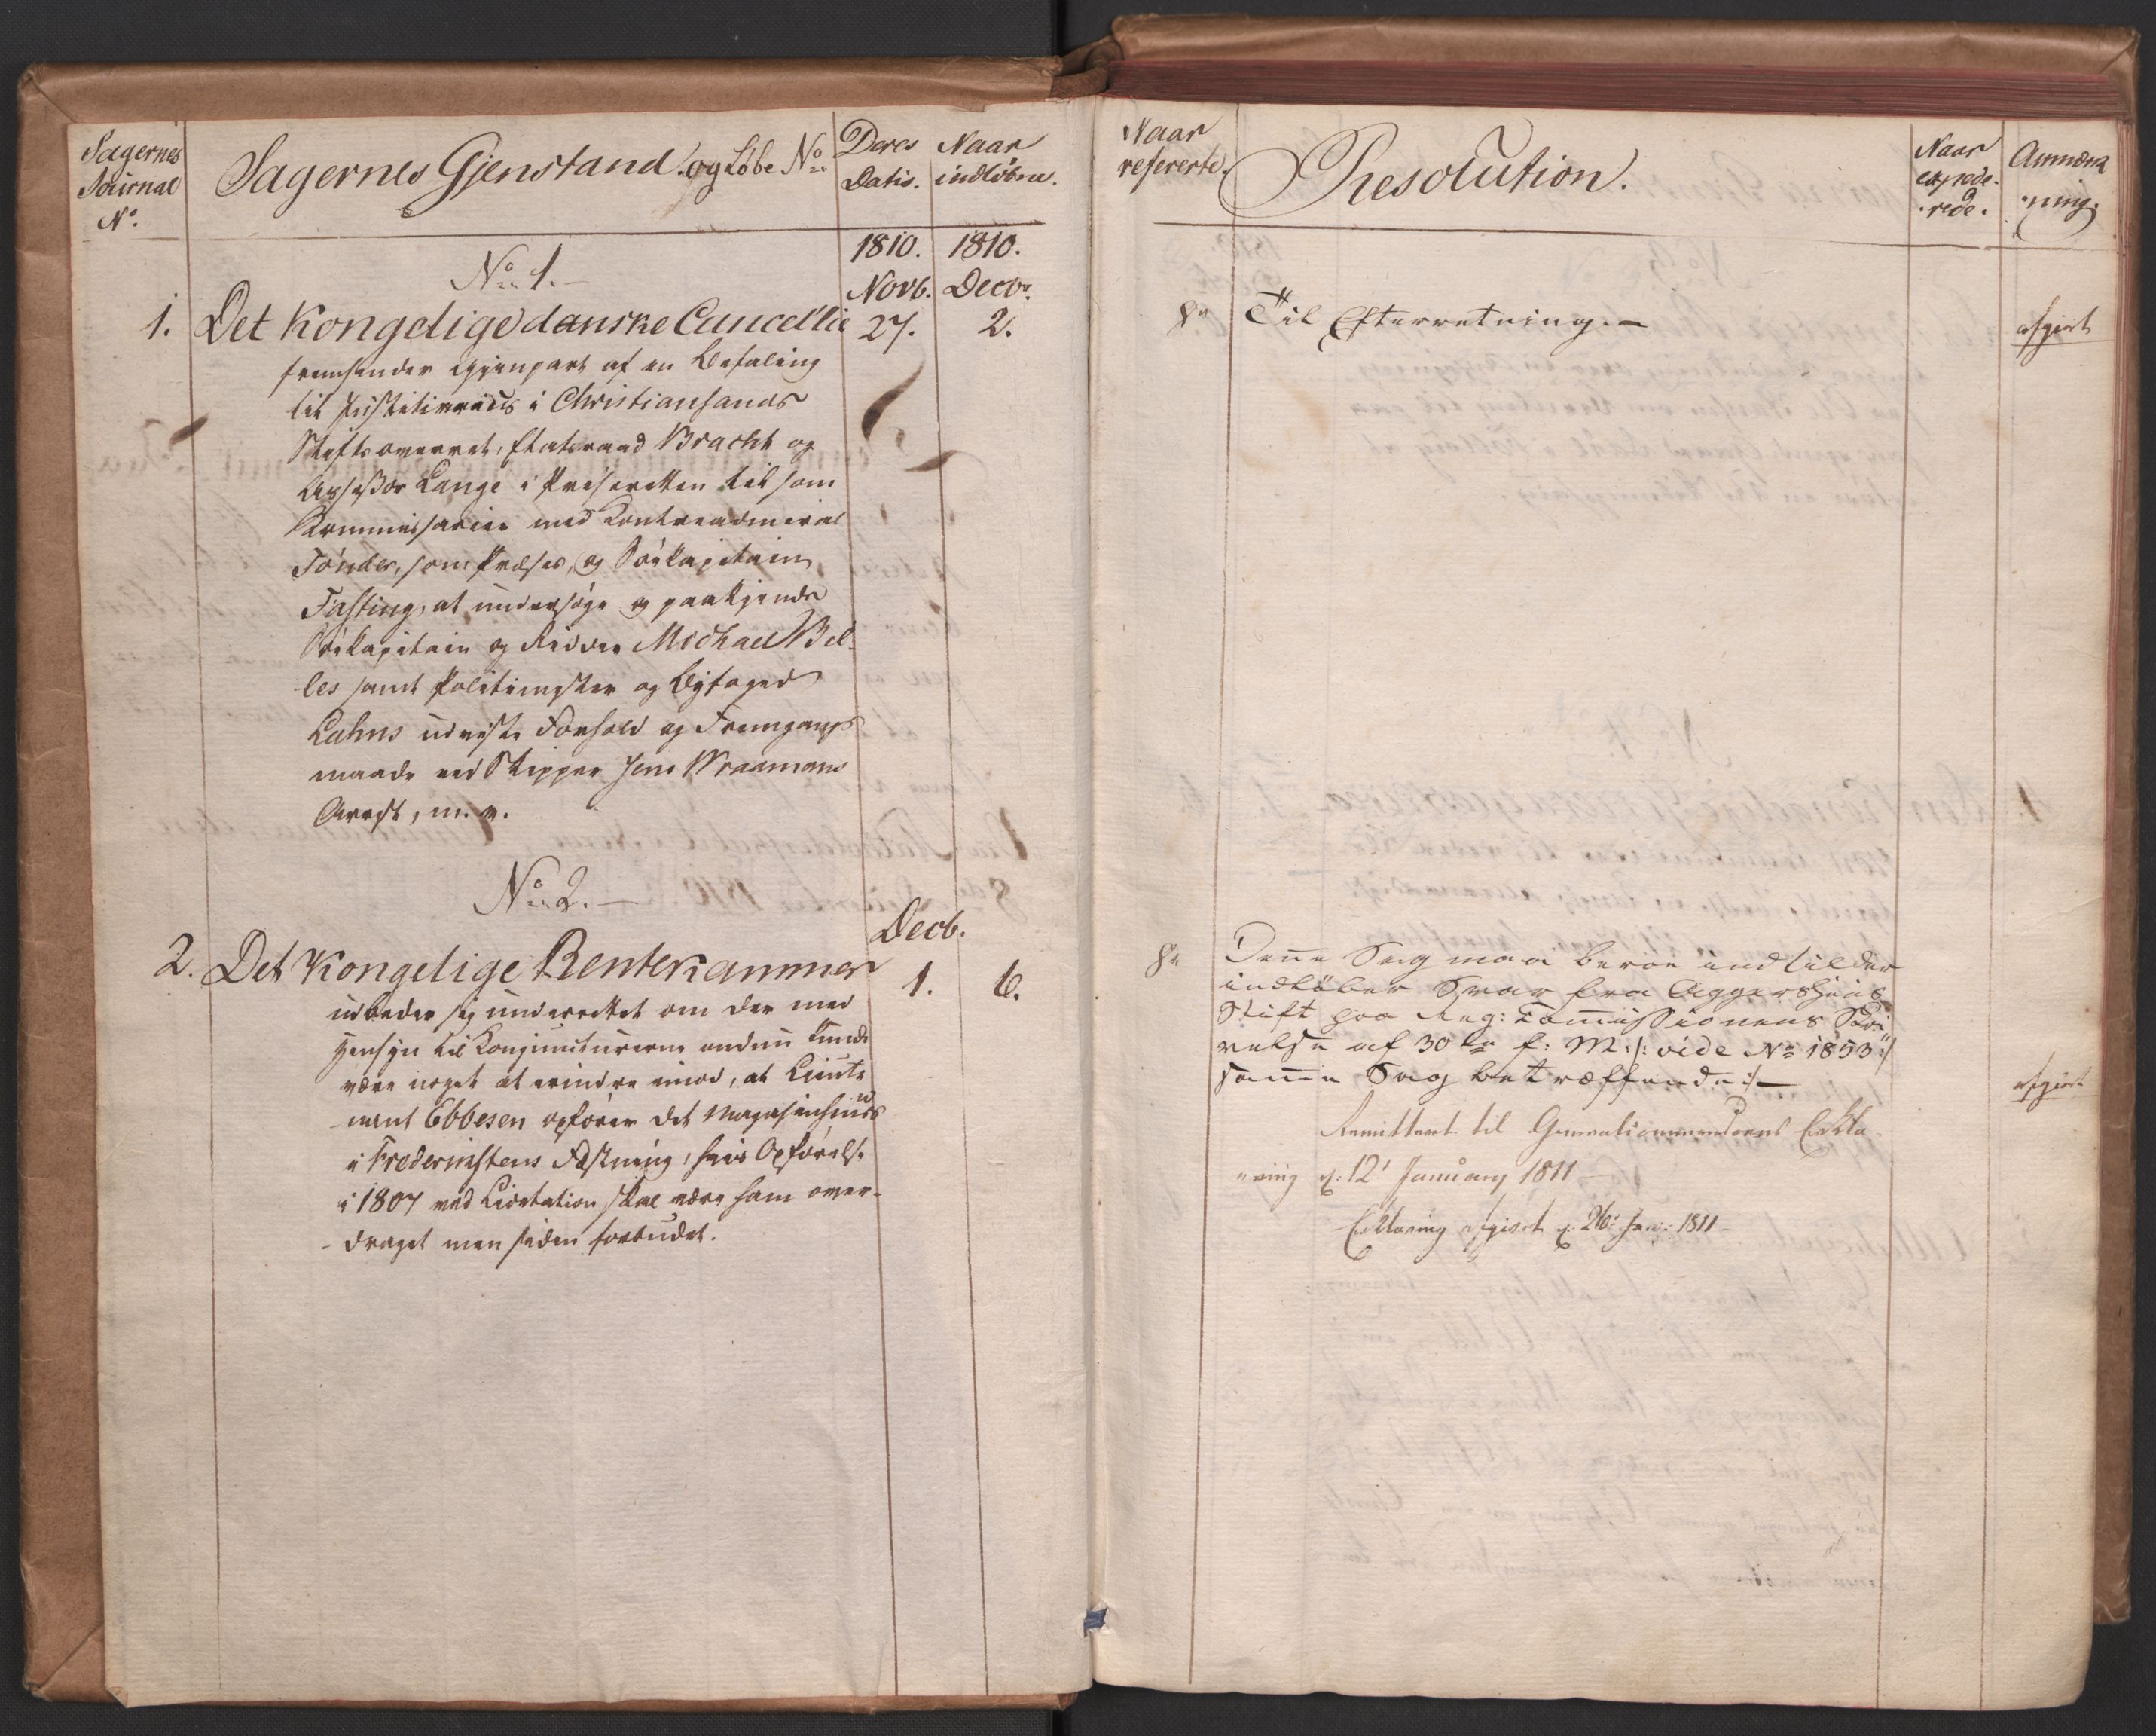 Sagernes
Journal
No.
Sagernes Gjenstand og Løbe No.
Deres
Datis.
Naar
indløbne.
1810. 1810.
No. 1.
Novb. Decbr.
1. Det Kongelige danske Cancellie 27. 2.
fremsender Gjenpart af en Befaling
til Justitiarius i Christiansands
Stiftsoverret, Etatsraad Bracht og
Assessor Lange i Priseretten til som
Kommissarier med Contreadmiral
Tönder, som Præses, og Söekapitain
Fasting, at undersöge og paakjende
Söekapitain og Ridder Michael Bil-
les samt Politimester og Byfoged
Lahns udviste Forhold og Fremgangs
maade ved Skipper Jens Wraamans
Arrest, m. v.
No. 2.
Decb.
2. Det Kongelige Rentekammer 1. 6.
udbeder sig underrettet om der med
Hensyn til Conjuncturerne endnu kunde
være noget at erindre imod, at Lieute
nant Ebbesen opförer det Magasinhuus
i Fredericstens Fæstning, hvis Opförelse
i 1807 ved Licitation skal være ham over-
draget men siden forbudet.
Naar
refererte.
Resolution.
Naar
expede-
rede.
Anmærk
ning.
8de Til Efterretning.— afgiort
8de Denne Sag maa beroe indtil der
indlöber Svar fra Aggershuus
Stift paa Reg: Commissionens Skri
velse af 30te f: M: /: vide No 1853 :/
samme Sag betræffende :/— afgiort
Remitteret til Generalcommandoens Erklæ
ring d: 12' January 1811
Erklæring afgivet d: 26' Jan: 1811